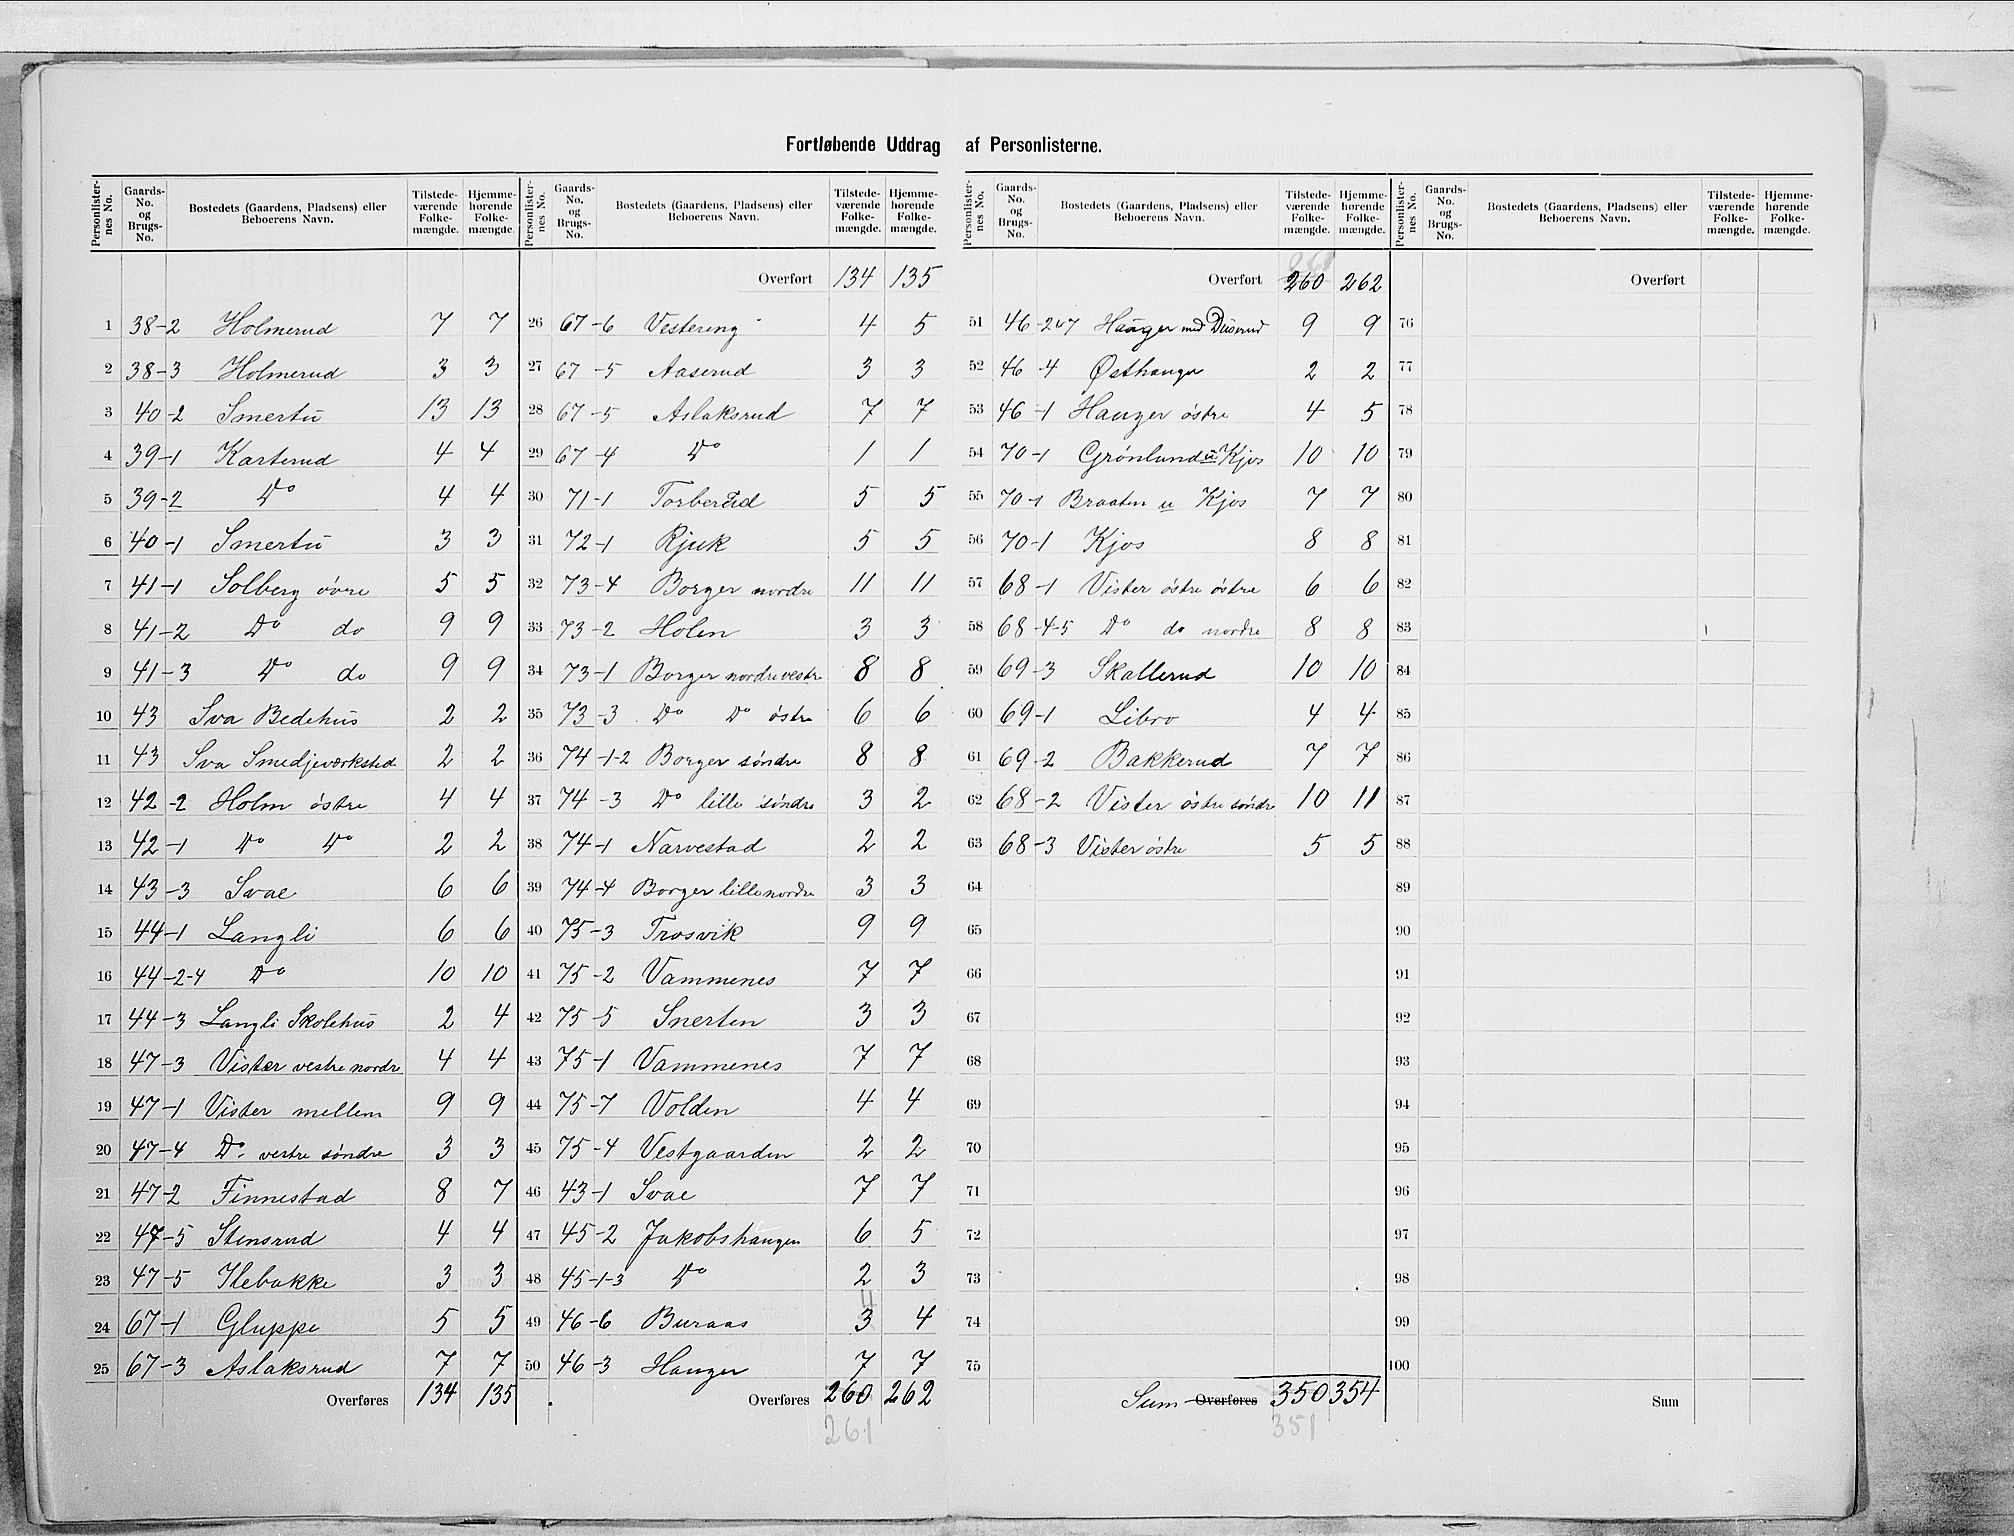 Fortløbende Uddrag af Personlisterne.
Personlister-nes No. | Gaards-No. og Brugs-No. | Bostedets (Gaardens, Pladsens) eller Beboerens Navn. | Tilstede-værende Folke-mængde. | Hjemme-hørende Folke-mængde.
1 38-2 Holmerud 7 7
2 38-3 Holmerud 3 3
3 40-2 Smertu 13 13
4 39-1 Karterud 4 4
5 39-2 Do 4 4
6 40-1 Smertu 3 3
7 41-1 Solberg övre 5 5
8 41-2 Do do 9 9
9 41-3 Do do 9 9
10 43 Sva Bedehus 2 2
11 43 Sva Smedjeværksted 2 2
12 42-2 Holm östre 4 4
13 42-1 Do Do 2 2
14 43-3 Svae 6 6
15 44-1 Langli 6 6
16 44-2-4 Do 10 10
17 44-3 Langli Skolehus 2 4
18 47-3 Vister vestre nordre 4 4
19 47-1 Vister mellem 9 9
20 47-4 Do vestre söndre 3 3
21 47-2 Finnestad 8 7
22 47-5 Stensrud 4 4
23 47-5 Ilebakke 3 3
24 67-1 Gluppe 5 5
25 67-3 Aslaksrud 7 7
Overføres 134 135
Personlister-nes No. | Gaards-No. og Brugs-No. | Bostedets (Gaardens, Pladsens) eller Beboerens Navn. | Tilstede-værende Folke-mængde. | Hjemme-hørende Folke-mængde.
Overført 134 135
26 67-6 Vestereng 4 5
27 67-5 Aaserud 3 3
28 67-5 Aslaksrud 7 7
29 67-4 Do 1 1
30 71-1 Torbertrød 5 5
31 72-1 Rjuk 5 5
32 73-4 Borger nordre 11 11
33 73-2 Holen 3 3
34 73-1 Borger nordre vestre 8 8
35 73-3 Do Do östre 6 6
36 74-1-2 Borger söndre 8 8
37 74-3 Do lille söndre 3 2
38 74-1 Narvestad 2 2
39 74-4 Borger lille nordre 3 3
40 75-3 Trosvik 9 9
41 75-2 Vammenes 7 7
42 75-5 Snerten 3 3
43 75-1 Vammenes 7 7
44 75-7 Volden 4 4
45 75-4 Vestgaarden 2 2
46 43-1 Svae 7 7
47 45-2 Jakobshaugen 6 5
48 45-1-3 Do 2 3
4
49 46-6 Buraas 3 4
50 46-3 Hauger 7 7
Overføres 260 262
261
Personlister-nes No. | Gaards-No. og Brugs-No. | Bostedets (Gaardens, Pladsens) eller Beboerens Navn. | Tilstede-værende Folke-mængde. | Hjemme-hørende Folke-mængde.
261
Overført 260 262
51 46-2 Hauger med Duserud 9 9
52 46-4 Östhauger 2 2
53 46-1 Hauger östre 4 5
54 70-1 Grönlund u Kjos 10 10
55 70-1 Braaten u Kjos 7 7
56 70-1 Kjos 8 8
57 68-1 Vister östre östre 6 6
58 68-4-5 Do do nordre 8 8
59 69-3 Skallerud 10 10
60 69-1 Libro 4 4
61 69-2 Bakkerud 7 7
62 68-2 Vister östre söndre 10 11
63 68-3 Vister östre 5 5
64
65
66
67
68
69
70
71
72
73
74
75
Sum Overføres 350 354
351
Personlister-nes No. | Gaards-No. og Brugs-No. | Bostedets (Gaardens, Pladsens) eller Beboerens Navn. | Tilstede-værende Folke-mængde. | Hjemme-hørende Folke-mængde.
Overført
76
77
78
79
80
81
82
83
84
85
86
87
88
89
90
91
92
93
94
95
96
97
98
99
100
Sum